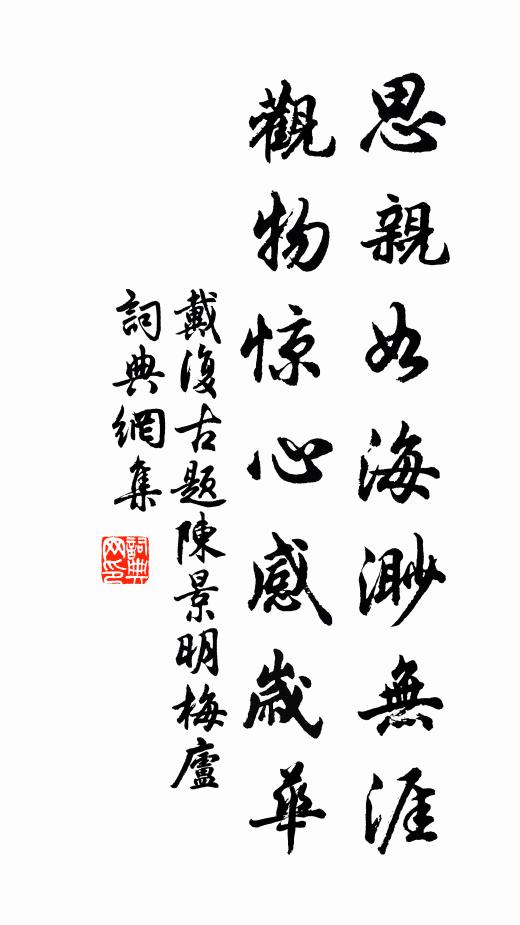 思親如海渺無涯
觀物惊心感歲華
戴復古題陳景明梅廬
詞典網集
詞典
网印